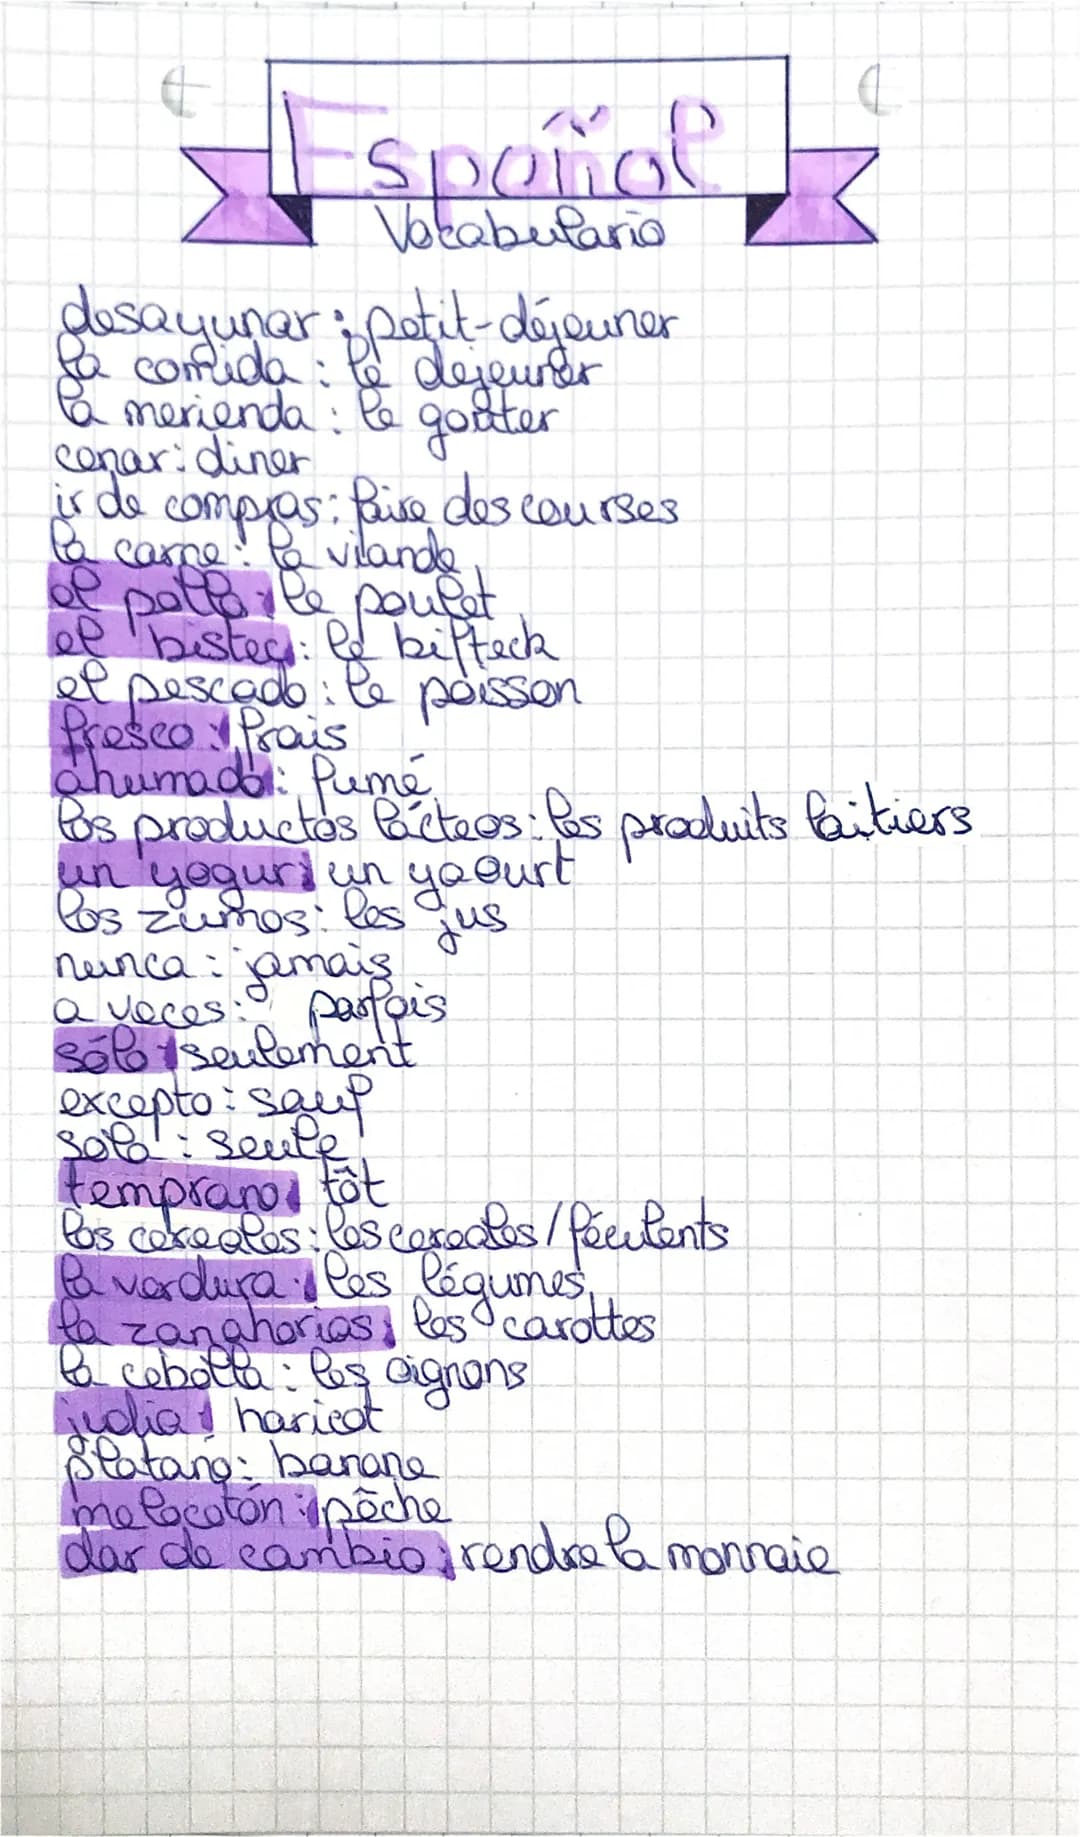 Español
Vocabulario
desayunar : petit-déjeuner
la comida : le dejeuner
la merienda : le goûter
cenar : diner
ir de compras : faire des courses
la carne : la viande
el pollo : le poulet
el bistec : le bifteck
el pescado : le poisson
fresco : frais
ahumado : fumé
los productos lácteos : les produits laitiers
un yogur : un yaourt
los zumos : les jus
nunca : jamais
a veces : parfois
sólo : seulement
excepto : sauf
sola : seule
temprano : tôt
los cereales : les cereales / féculents
la verdura : les légumes
la zanahorias : les carottes
la cebolla : les oignons
judia : haricot
platano : banane
melocotón : pêche
dar de cambio : rendre la monnaie